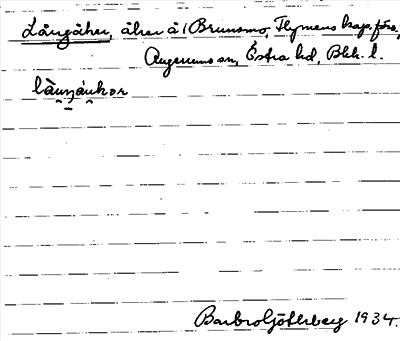 Långåker, åker å 1 Brunsmo, Flymens kap. förs.,
Augerums sn, Östra hd, Blek. l.
Barbro Götherberg 1934.